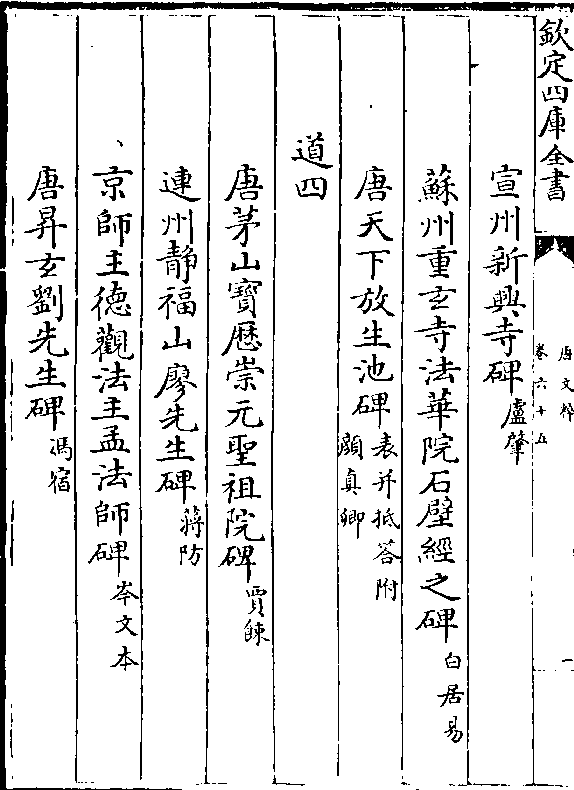 欽定四庫全書
唐文粹
卷六十五
一
宣州新興寺碑 盧肇
蘇州重玄寺法華院石壁經之碑 白居易
唐天下放生池碑 表并抵答附 顔真卿
道四
唐茅山寳歴崇元聖祖院碑 賈餗
連州靜福山廖先生碑 蔣防
京師主德觀法主孟法師碑 岑文本
唐昇玄劉先生碑 馮宿